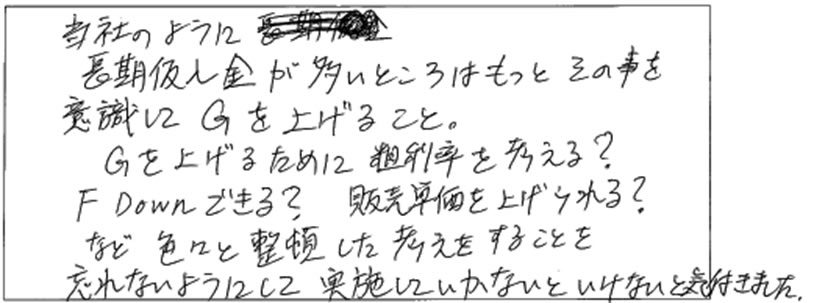 当社のように
長期仮入金が多いところはもっとその事を
意識してGを上げること。
Gを上げるために粗利率を考える?
F Downできる? 販売単価を上げられる?
など色々と整頓した考えをすることを
忘れないようにして実施していかないといけないと気付きました。